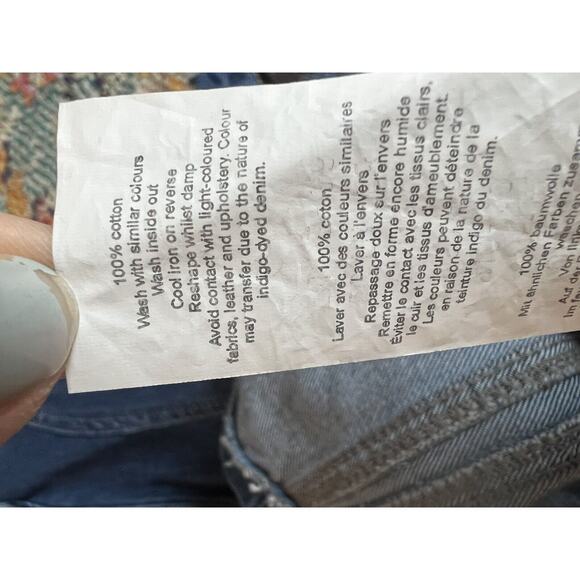 100% cotton
Wash with similar colours
Wash inside out
Cool iron on reverse
Reshape whilst damp
Avoid contact with light-coloured
fabrics, leather and upholstery. Colour
may transfer due to the nature of
indigo-dyed denim.
100% coton
Laver avec des couleurs similaires
Laver à l'envers
Repassage doux sur l'envers
Remettre en forme encore humide
Éviter le contact avec les tissus clairs,
le cuir et les tissus d'ameublement.
Les couleurs peuvent déteindre
en raison de la nature de la
teinture indigo du denim.
100% baumwolle
Mit ähnlichen Farben
Auf